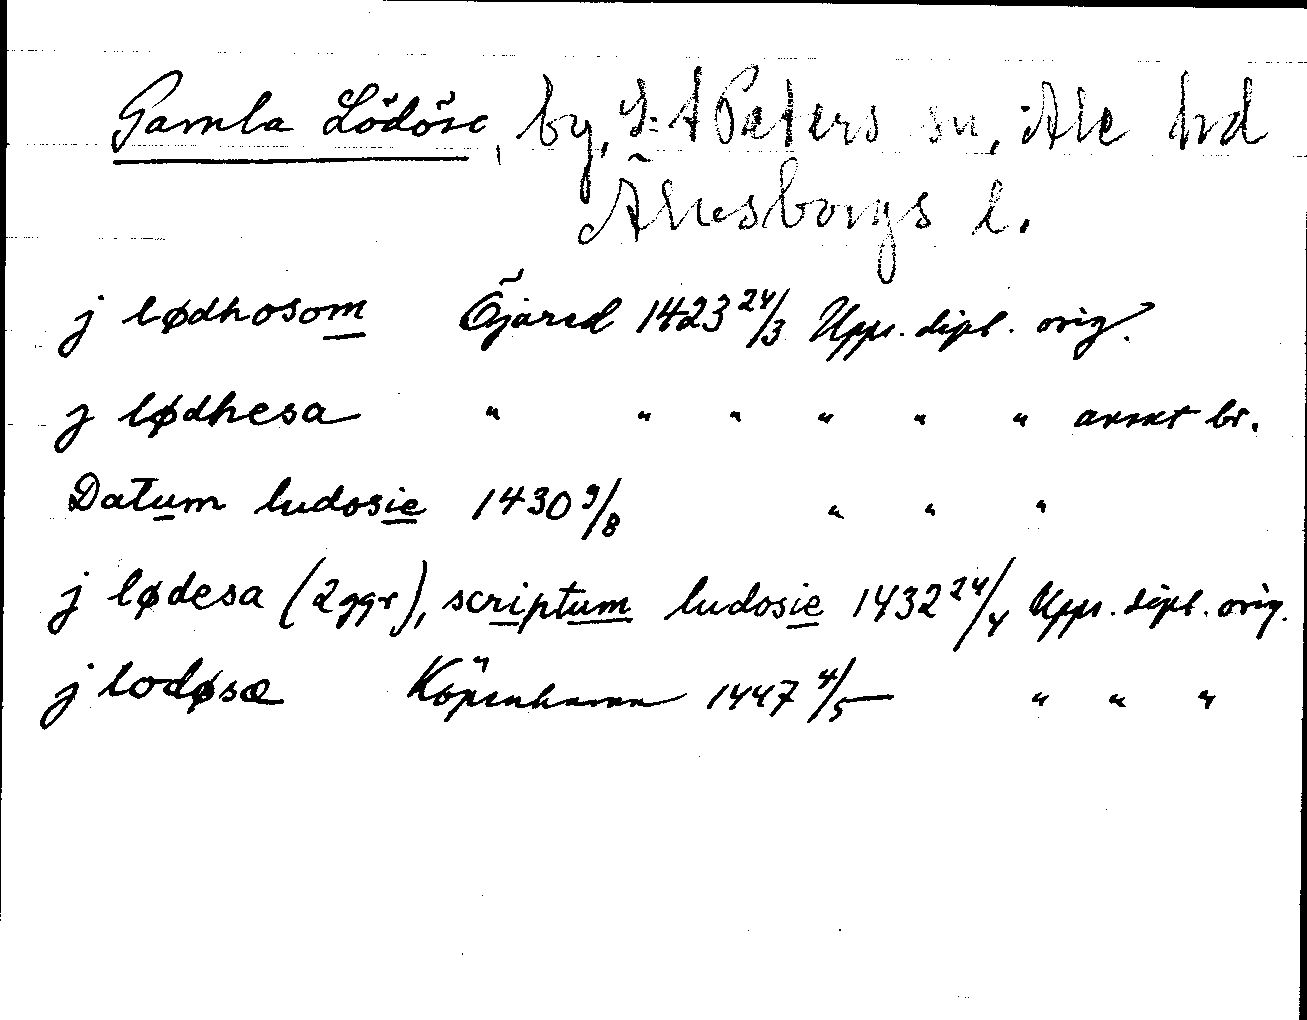 Gamla Lödöse, by, S:t Peters sn, Ale hd
Älvsborgs l.
j lødhosom Öjared 1423 24/3 Upps. dipl. orig.
j lødhesa " " " " " " avskt br.
Datum ludosie 1430 9/8 " " "
j lødesa (2 ggr), scriptum ludosie 1432 24/4 Upps. dipl. orig.
j lodøsæ Köpenhamn 1447 4/5 " " "